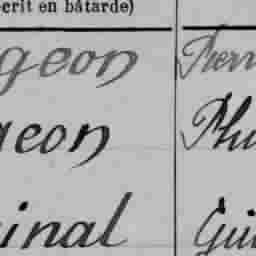 écrit en bâtarde)
geon Pierr
geon Phi
inal Gui